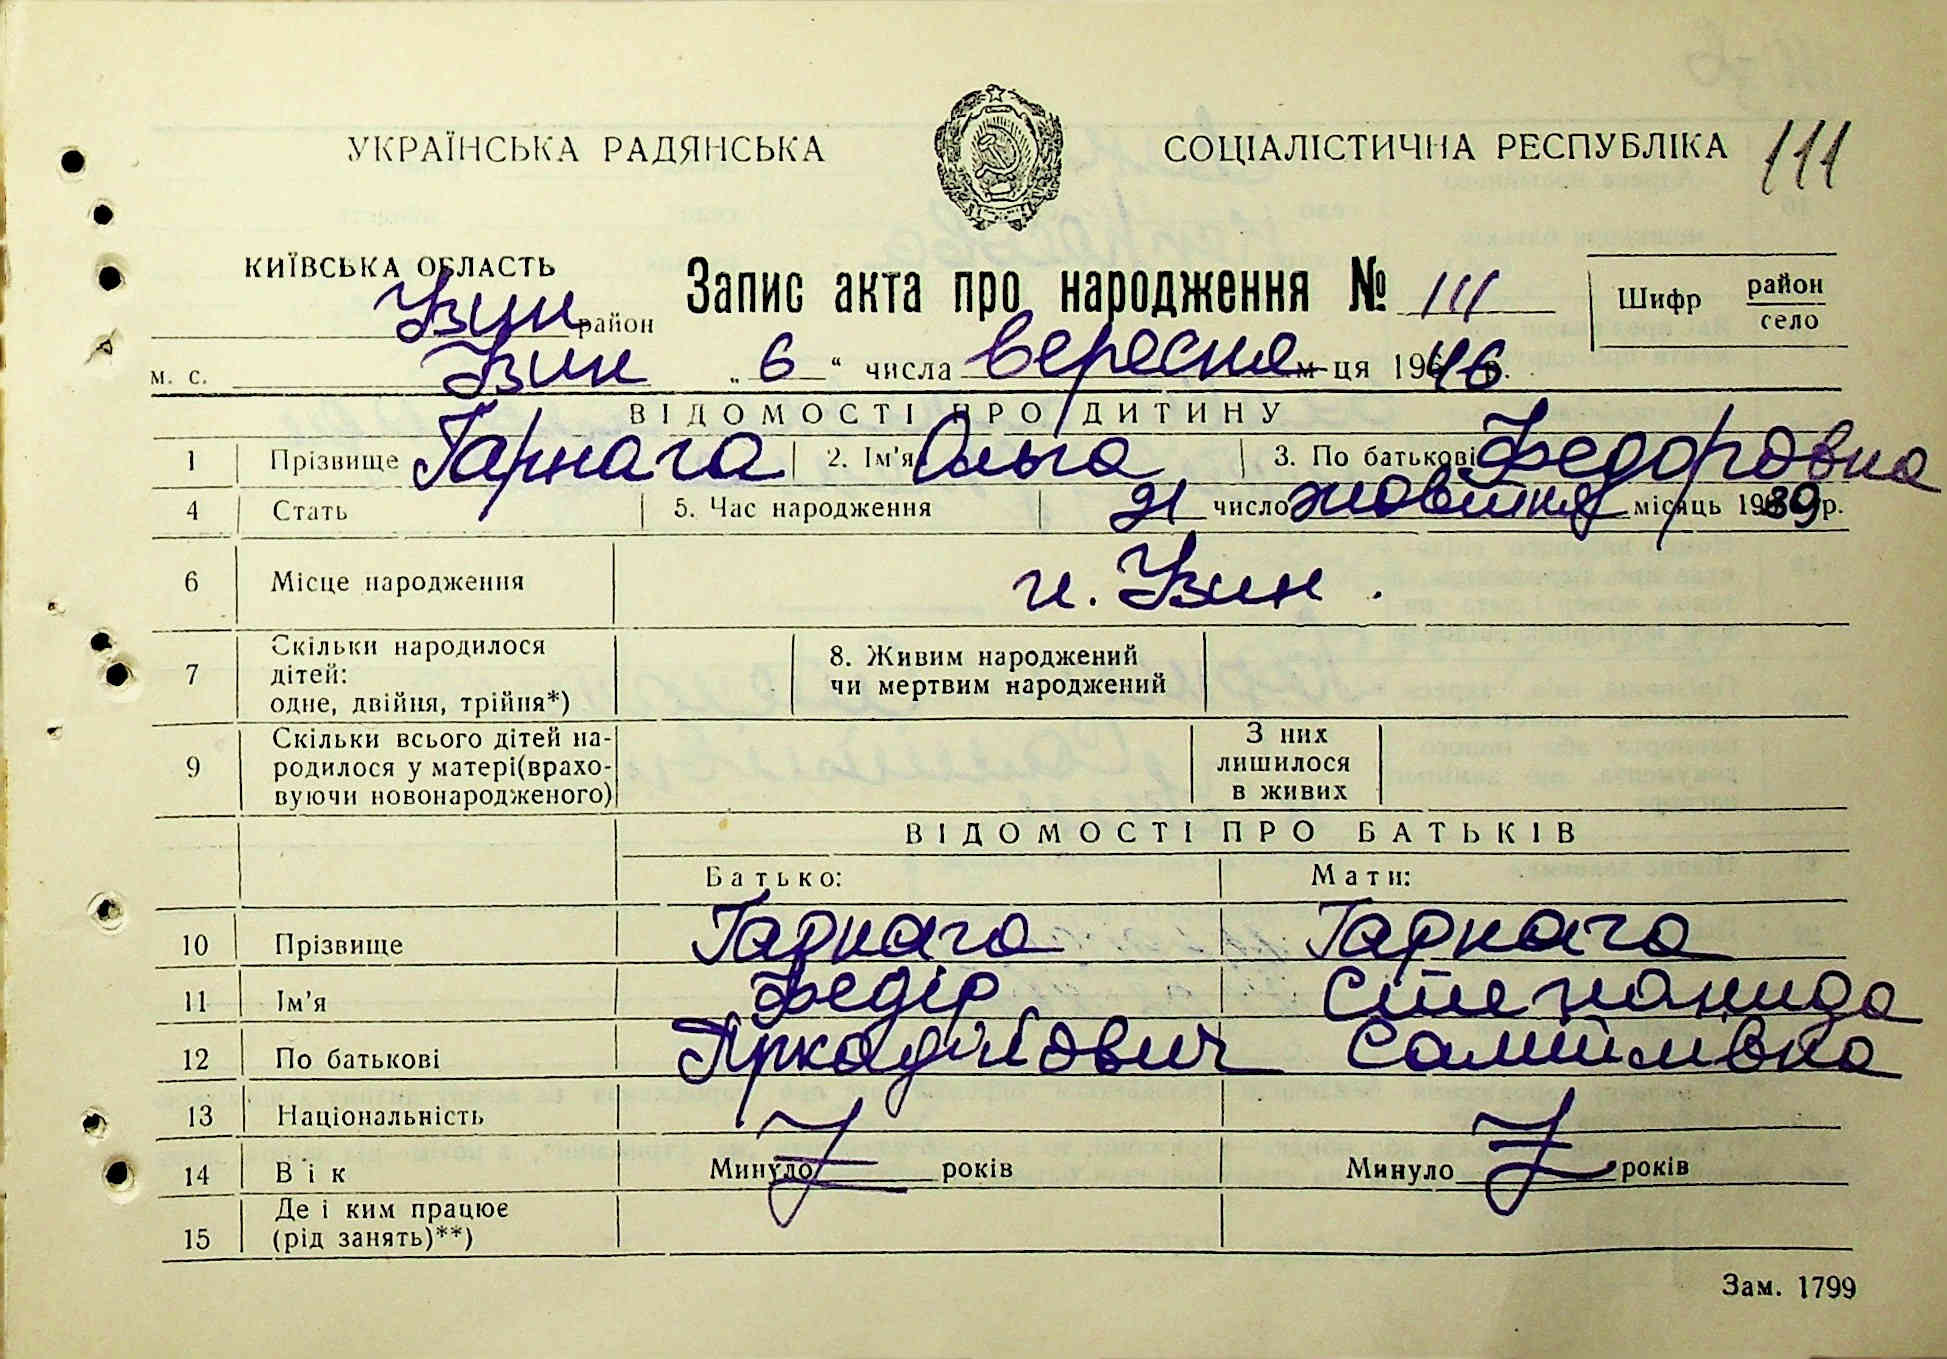 УКРАЇНСЬКА РАДЯНСЬКА СОЦІАЛІСТИЧНА РЕСПУБЛІКА 111
КИЇВСЬКА ОБЛАСТЬ
Узин район
Запис акта про народження № 111
Шифр район село
м. с. Узин „ 6 “ числа вересня м-ця 1946 р.
ВІДОМОСТІ ПРО ДИТИНУ
1 Прізвище Гарнага 2. Ім'я Ольга 3. По батькові Федоровна
4 Стать 5. Час народження 21 число жовтня місяць 1939 р.
6 Місце народження м. Узин.
7 Скільки народилося
дітей:
одне, двійня, трійня*)
8. Живим народжений
чи мертвим народжений
9 Скільки всього дітей на-
родилося у матері(врахо-
вуючи новонародженого)
З них
лишилося
в живих
ВІДОМОСТІ ПРО БАТЬКІВ
Батько: Мати:
10 Прізвище Гарнага Гарнага
11 Ім'я Федір Степанида
12 По батькові Аркадійович Самійлівна
13 Національність
14 Вік Минуло років Минуло років
15 Де і ким працює
(рід занять)**)
Зам. 1799